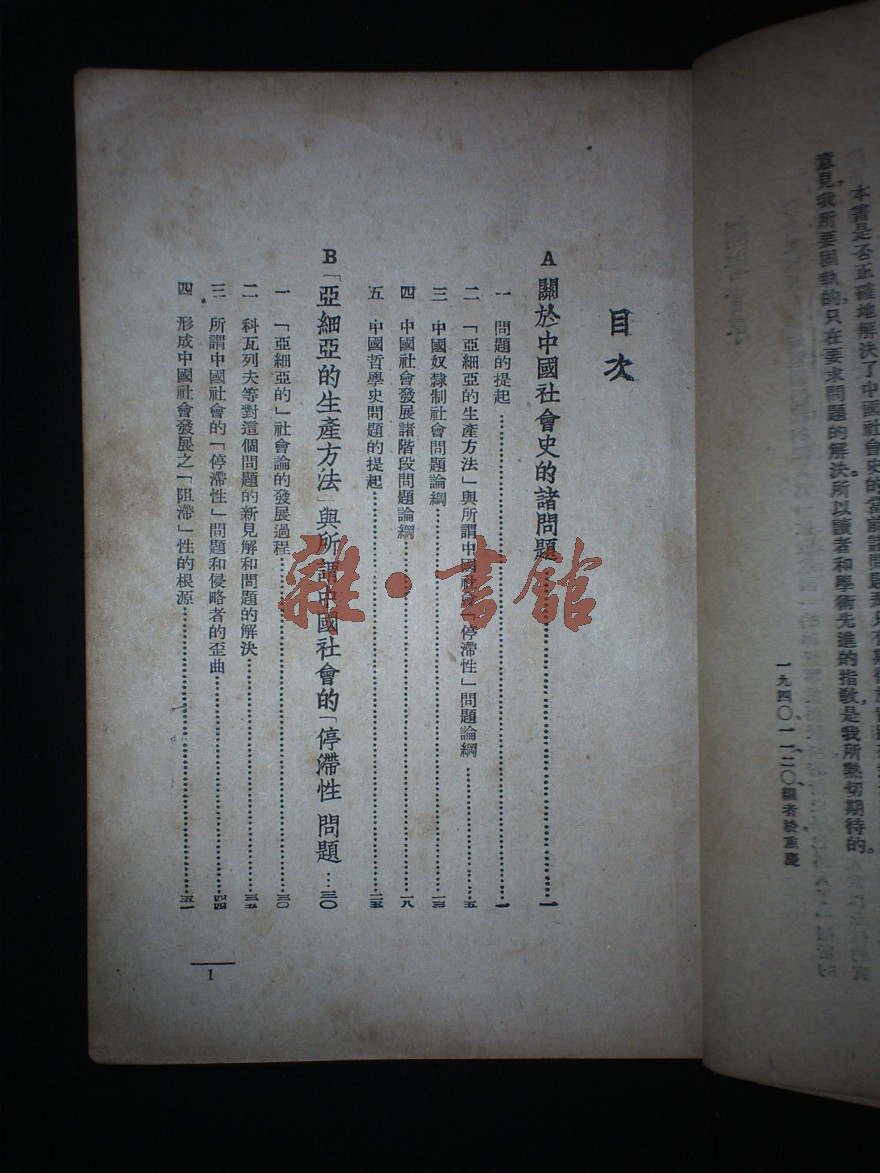 本書是否正確地解決了中國社會史的當前諸問題
意見，我所要固執的，只在要求問題的解決。所以讀者和學術先進的指教，是我所熱切期待的。
一九四〇、一一、二〇、編者於重慶
目次
A 關於中國社會史的諸問題……一
一 問題的提起……一
二 「亞細亞的生產方法」與所謂中國社會「停滯性」問題論綱……五
三 中國奴隸制社會問題論綱……一三
四 中國社會發展諸階段問題論綱……一八
五 中國哲學史問題的提起……二五
B 「亞細亞的生產方法」與所謂中國社會的「停滯性 問題……三〇
一 「亞細亞的」社會論的發展過程……三〇
二 科瓦列夫等對這個問題的新見解和問題的解決……三五
三 所謂中國社會的「停滯性」問題和侵略者的歪曲……四四
四 形成中國社會發展之「阻滯」性的根源……五一
1
雜·書館